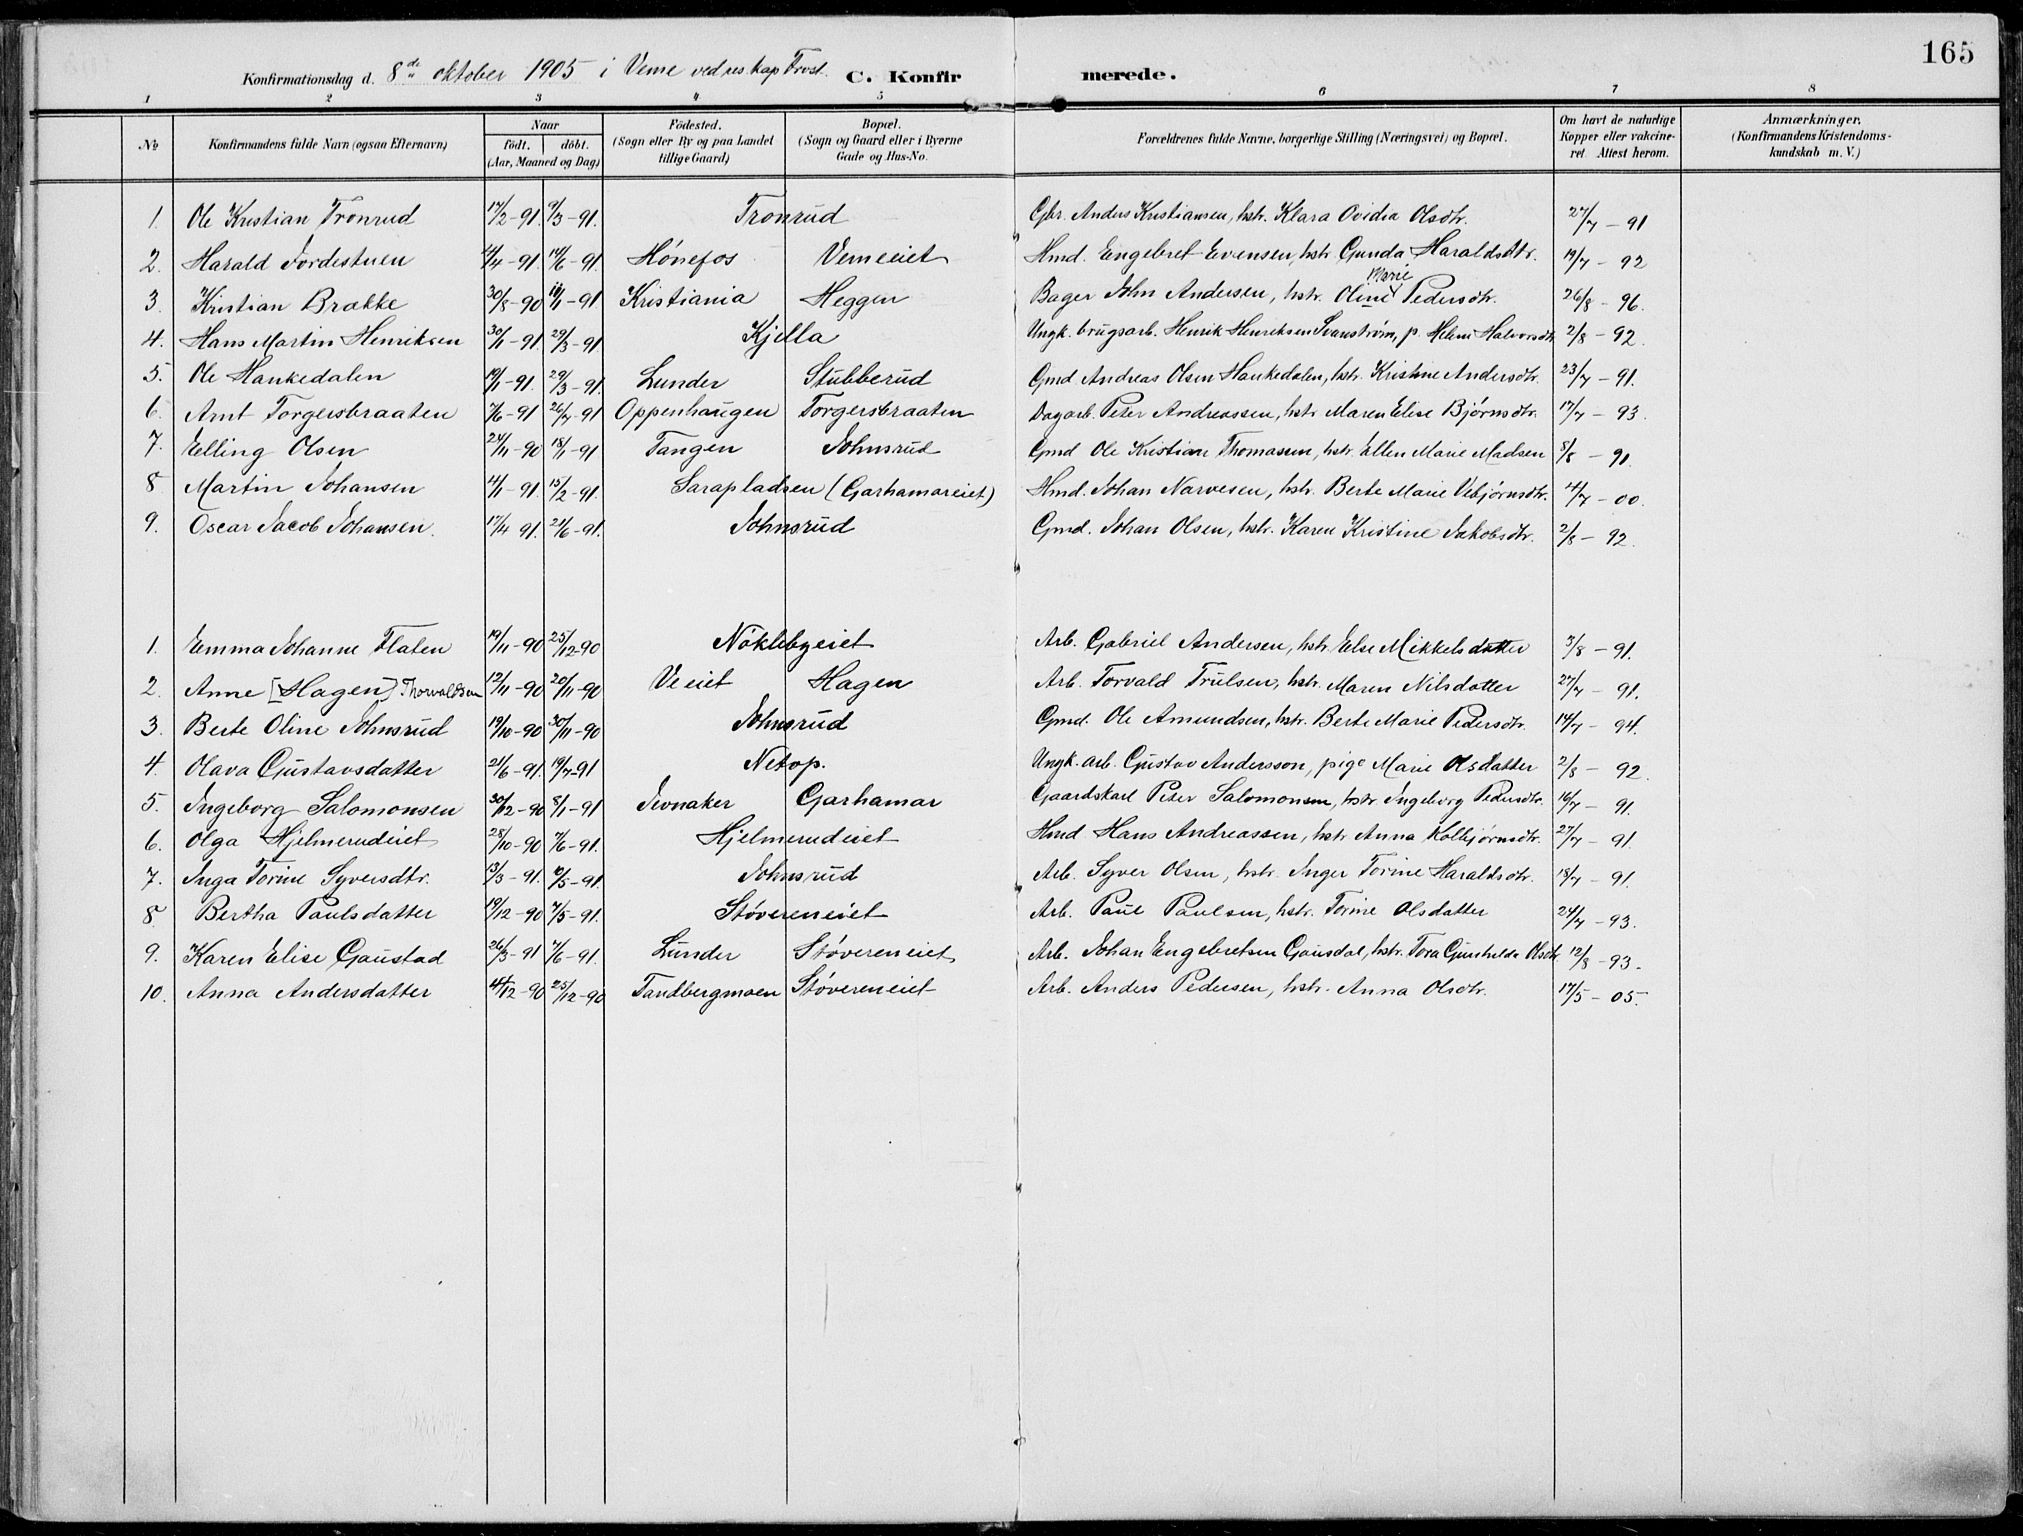 165
Konfirmationsdag d. 8de oktober 1905 i Veme ved res. kap Frost. C. Konfirmerede.
1 2 3 4 5 6 7 8
No Konfirmandens fulde Navn (ogsaa Efternavn) Naar födt. döbt. (Aar, Maaned og Dag) Födested. (Sogn eller By og paa Landet tillige Gaard) Bopæl. (Sogn og Gaard eller i Byerne Gade og Hus-No. Forældrenes fulde Navne, borgerlige Stilling (Næringsvei) og Bopæl. Om havt de naturlige Kopper eller vakcineret Attest herom. Anmærkninger. (Konfirmandens Kristendomskundskab m. V.)
1. Ole Kristian Tronrud 17/2-91. 9/3-91. Tronrud Gbr. Anders Kristiansen, hstr. Klara Ovidia Olsdtr. 27/7 - 91
2. Harald Jordestuen 14/4-91. 14/6-91. Hönefos Vemeeiet Hmd. Engebret Evensen, hstr Gunda Haraldsdtr. 19/7 - 92
3. Kristian Brække 30/8-90 18/1-91 Kristiania Heggen Bager John Andersen, hstr. Oline Marie Pedersdtr. 26/8 - 96.
4. Hans Martin Henriksen 30/1-91 29/3-91. Kjella Ungk. brugsarb. Henrik Henriksen Svanström, p. Helene Halvorsdtr 2/8 - 92.
5. Ole Haukedalen 19/1-91. 29/3-91. Lunder Stubberud Gmd Andreas Olsen Haukedalen, hstr. Kristine Andersdtr. 23/7 - 91.
6. Arnt Torgersbraaten 7/6-91 26/7-91 Oppenhaugen Torgersbraaten Dagarb. Peter Andreassen, hstr Maren Elise Bjørnsdtr. 17/7 - 93.
7. Elling Olsen 24/11-90 18/1-91 Tangen Johnsrud Gmd Ole Kristian Thomassen, hstr. Ellen Marie Madsen 8/8 - 91.
8 Martin Johansen 14/1-91. 15/2-91. Sarapladsen (Garhamareiet) Hmd. Johan Narvesen, hstr. Berte Marie Vebjørnsdtr. 4/7 - 00.
9. Oscar Jacob Johansen. 17/4 91. 21/6-91. Johnsrud Gmd. Johan Olsen, hstr. Karen Kristine Jakobsdtr. 2/8 - 92.
1. Emma Johanne Flaten 19/11-90 25/12-90 Nöklebyeiet Arb. Gabriel Andersen, hstr. Else Mikkelsdatter 3/8 - 91.
2. Anne [Hagen] Thorvaldsen 12/11-90 20/11-90 Veeiet Hagen Arb. Torvald Trulsen, hstr. Maren Nilsdatter 27/7 - 91.
3. Berte Oline Johnsrud 19/10-90 30/11-90 Johnsrud Gmd. Ole Amundsen, hstr. Berte Marie Pedersdtr. 14/7 - 94.
4. Olava Gustavsdatter 21/6-91. 19/7-91 Netop. Ungk. arb. Gustav Andersson, pige Marie Olsdatter 2/8 - 92.
5. Ingeborg Salomonsen 30/12-90 8/1-91 Jevnaker Garhamar Gaardskarl Peter Salomonsen, hstr. Ingeborg Pedersdtr. 16/7 - 91.
6. Olga Hjelmerudeiet 28/10-90 7/6-91. Hjelmerudeiet Hmd Hans Andreassen, hstr Anna Kolbjørnsdtr. 27/7 - 91.
7. Inga Torine Syversdtr. 13/3-91. 10/5-91. Johnsrud Arb. Syver Olsen, hstr. Inger Torine Haraldsdtr. 18/7 - 91.
8. Bertha Paulsdatter 19/12-90 7/5-91. Støvereneiet Arb. Paul Paulsen, hstr. Torine Olsdatter 24/7 - 93.
9. Karen Elise Gaustad 26/3-91 7/6-91. Lunder Støvereneiet Arb. Johan Engebretsen Gausdal, hstr. Tora Gunhilda Olsdtr 12/8 - 93.
10. Anna Andersdatter 4/12-90 25/12-90 Tandbergmoen Støvereneiet Arb. Anders Pedersen, hstr. Anna Olsdtr. 17/5 - 05.